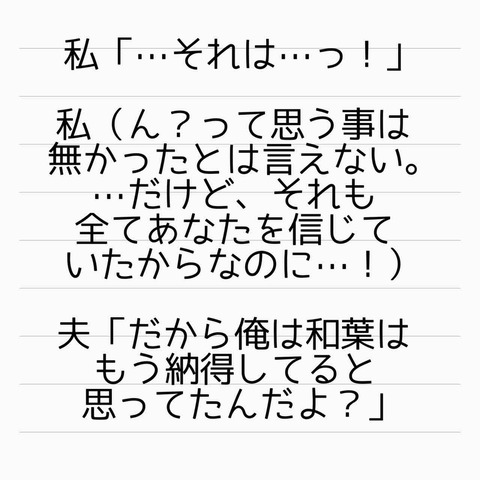 私「…それは…っ！」
私（ん？って思う事は
無かったとは言えない。
…だけど、それも
全てあなたを信じて
いたからなのに…！）
夫「だから俺は和葉は
もう納得してると
思ってたんだよ？」